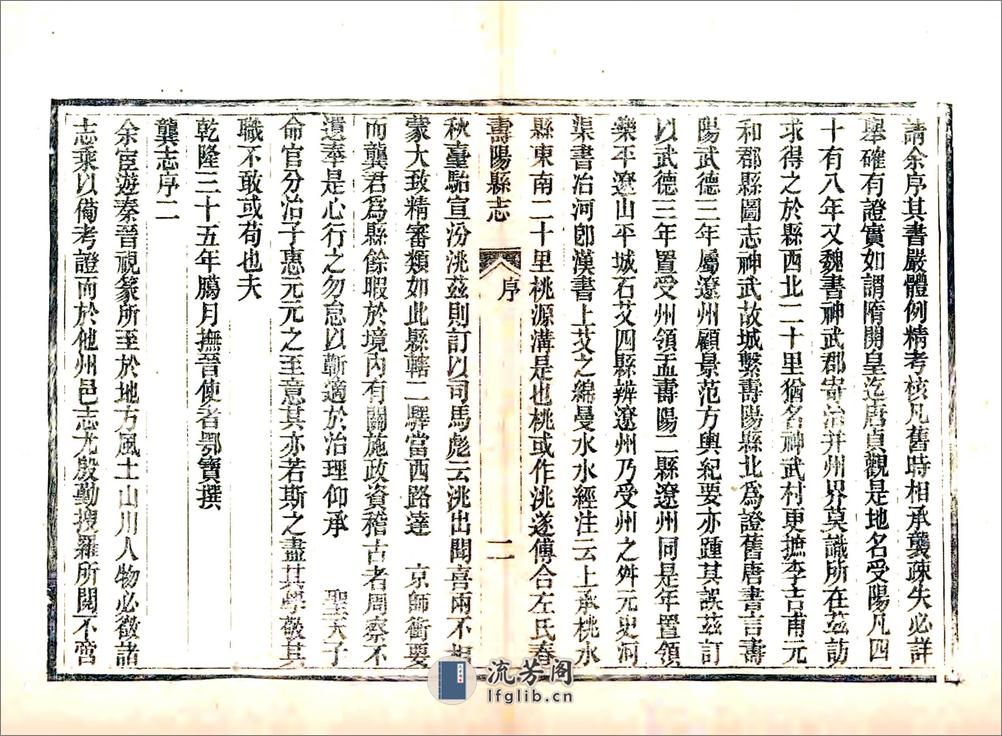 請余序其書嚴體例精考核凡舊時相承襲疎失必詳
舉確有證實如謂隋開皇迄唐貞觀是地名受陽凡四
十有八年又魏書神武郡寄治并州界莫識所在茲訪
求得之於縣西北二十里猶名神武村更摭李吉甫元
和郡縣圖志神武故城繫壽陽縣北爲證舊唐書言壽
陽武德三年屬遼州顧景范方輿紀要亦踵其誤茲訂
以武德三年置受州領盂壽陽二縣遼州同是年置領
樂平遼山平城石艾四縣辨遼州乃受州之舛元史河
渠書冶河卽漢書上艾之綿曼水水經注云上承桃水
縣東南二十里桃源溝是也桃或作洮遂傅合左氏春
壽陽縣志
序
二
秋臺駘宣汾洮茲則訂以司馬彪云洮出聞喜兩不相
蒙大致精審類如此縣轄二驛當西路達 京師衝要
而龔君爲縣餘暇於境內有關施政資稽古者周察不
遺奉是心行之勿怠以蘄適於治理仰承 聖天子
命官分治子惠元元之至意其亦若斯之盡其學敬其
職不敢或苟也夫
乾隆三十五年臈月撫晉使者鄂寶撰
龔志序二
余宦遊秦晉視篆所至於地方風土山川人物必徵諸
志乘以備考證而於他州邑志尤殷勤搜羅所閱不啻
流芳阁
lfglib.cn